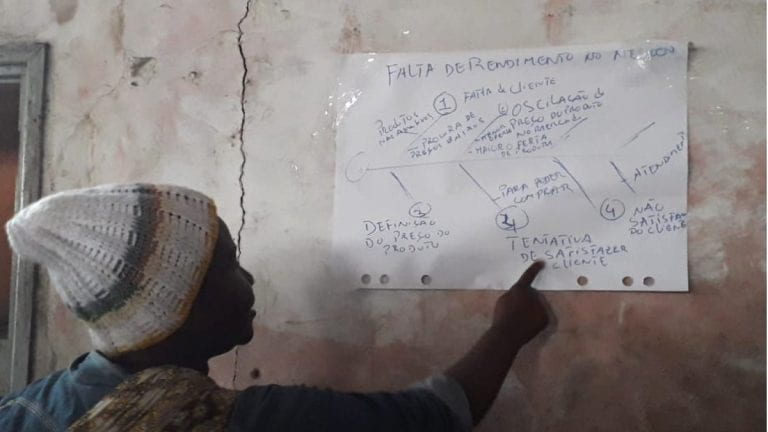 FALTA DE RENDIMENTO NO
1 FALTA de CLIENTE
OSCILAÇÃO do
PREÇO DO PRODUTO
NO MERCADO
PRODUTOS
PROCURA DE
PREÇOS BAIXOS
OFERTA
DE PRODUTO
ATENDIMENTO
PARA PODER
COMPRAR
3
DEFINISÃO
DO PREÇO DO
PRODUTO
2
TENTATIVA
DE SATISFAZER
CLIENTE
4
NÃO
SATISFAÇÃO
DO CLIENTE